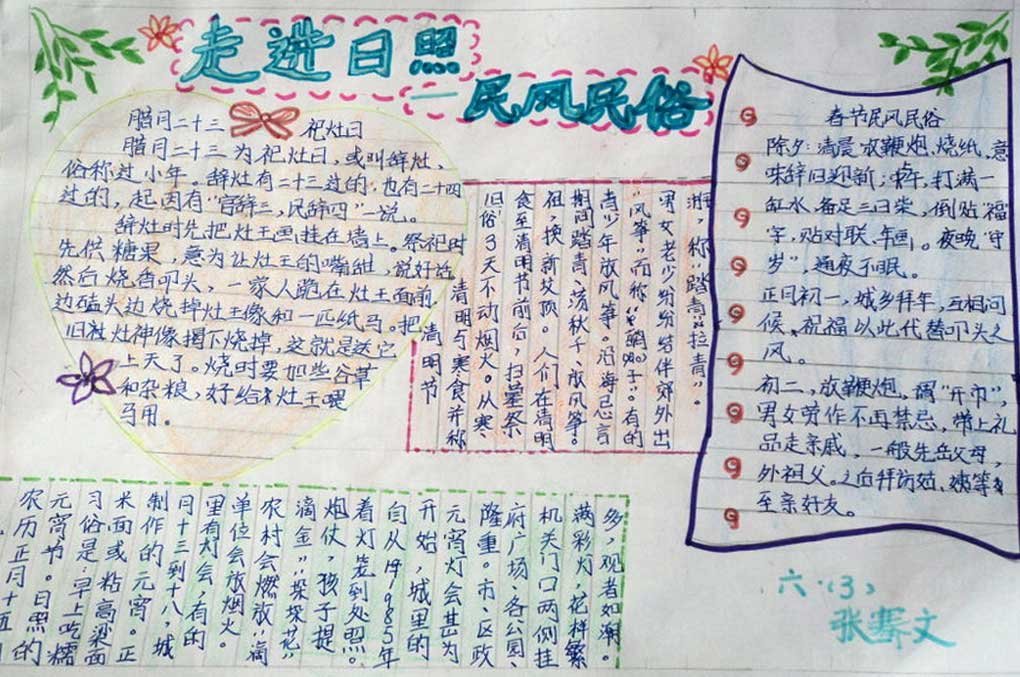 走进日照
—民风民俗
腊月二十三 祀灶日
腊月二十三为祀灶日，或叫辞灶，
俗称过小年。辞灶有二十三过的，也有二十四
过的，起因有“官辞三，民辞四”一说。
辞灶时先把灶王画挂在墙上。祭祀时
先供糖果，意为让灶王的嘴甜，说好话
然后烧香叩头，一家人跪在灶王面前
边磕头边烧掉灶王像和一匹纸马。把
旧灶神像揭下烧掉，这就是送它
上天了。烧时要加些谷草
和杂粮，好给灶王喂
马用。
清明节
清明与寒食并称
旧俗3天不动烟火。从寒
食至清明节前后，扫墓祭
祖，换新坟顶。人们在清明
期间踏青、荡秋千、放风筝。
青少年放风筝。沿海忌言
“风筝”而称“鹞子”。有的
男女老少纷纷结伴郊外出
游，称“踏青”“拉青”。
春节民风民俗
除夕：清晨放鞭炮、烧纸，意
味辞旧迎新；中午，打满一
缸水，备足三日柴，倒贴“福”
字，贴对联、年画。夜晚“守
岁”，通夜不眠。
正月初一，城乡拜年，互相问
候、祝福以此代替叩头之
风。
初二，放鞭炮，谓“开市”，
男女劳作不再禁忌，带上礼
品走亲戚，一般先岳父母，
外祖父。之后拜访姑、姨等
至亲好友。
农历正月十五
元宵节。日照的
习俗是：早上吃糯
米面或粘高粱面
制作的元宵。正
月十三到十八，城
里有灯会，有的
单位会放烟火。
农村会燃放“滴
滴金”“朵朵花”
烟仗，孩子提
着灯笼到处照。
自从1985年
开始，城里的
元宵灯会甚为
隆重。市、区政
府广场、各公园、
机关门口两侧挂
满彩灯，花样繁
多，观者如潮。
六.（3）
张骞文